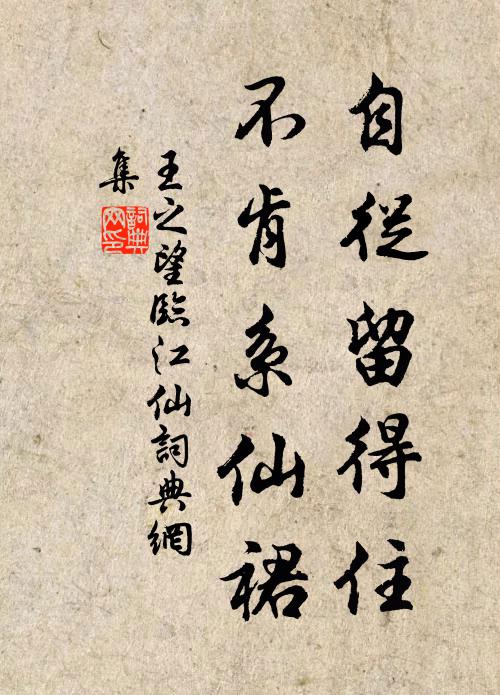 自從留得住
不肯系仙裙
王之望臨江仙詞典網
集
詞典
网印